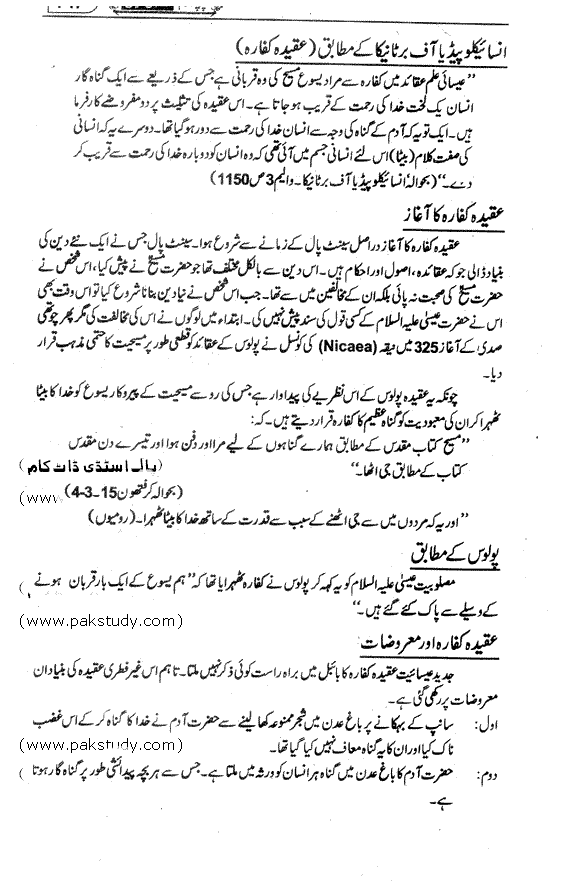 انسائیکلوپیڈیا آف برٹانیکا کے مطابق (عقیدہ کفارہ)
”عیسائی علم عقائد میں کفارہ سے مراد یسوع مسیح کی وہ قربانی ہے جس کے ذریعے سے ایک گناہ گار
انسان یک لخت خدا کی رحمت کے قریب ہو جاتا ہے۔ اس عقیدہ کی تثلیث پر دو مفروضے کارفرما
ہیں۔ ایک تو یہ کہ آدم کے گناہ کی وجہ سے انسان خدا کی رحمت سے دور ہو گیا تھا۔ دوسرے یہ کہ انسانی
کی صفت کلام (بیٹا) اس لئے انسانی جسم میں آئی تھی کہ وہ انسان کو دوبارہ خدا کی رحمت سے قریب کر
دے۔“ (بحوالہ انسائیکلوپیڈیا آف برٹانیکا۔ والیم 3 ص 1150)
عقیدہ کفارہ کا آغاز
عقیدہ کفارہ کا آغاز دراصل سینٹ پال کے زمانے سے شروع ہوا۔ سینٹ پال جس نے ایک نئے دین کی
بنیاد ڈالی جو کہ عقائدہ، اصول اور احکام ہیں۔ اس دین سے بالکل مختلف تھا جو حضرت مسیحؑ نے پیش کیا، اس شخص نے
حضرت مسیحؑ کی صحبت نہ پائی بلکہ ان کے مخالفین میں سے تھا۔ جب اس شخص نے نیا دین بنانا شروع کیا تو اس وقت بھی
اس نے حضرت عیسیٰ علیہ السلام کے کسی قول کی سند پیش نہیں کی۔ ابتداء میں لوگوں نے اس کی مخالفت کی مگر پھر چوتھی
صدی کے آغاز 325 میں نیقہ (Nicaea) کی کونسل نے پولوس کے عقائد کو قطعی طور پر مسیحیت کا حتمی مذہب قرار
دیا۔
چونکہ یہ عقیدہ پولوس کے اس نظریے کی پیداوار ہے جس کی رو سے مسیحیت کے پیروکار یسوع کو خدا کا بیٹا
ٹھہرا کر ان کی معبودیت کو گناہ عظیم کا کفارہ قرار دیتے ہیں۔ کہ:
”مسیح کتاب مقدس کے مطابق ہمارے گناہوں کے لیے مرا اور دفن ہوا اور تیسرے دن مقدس
کتاب کے مطابق جی اٹھا۔“ (پاک اسٹڈی ڈاٹ کام
(بحوالہ کرنتھیوں 15۔3-4) (www
”اور یہ کہ مردوں میں سے جی اٹھنے کے سبب سے قدرت کے ساتھ خدا کا بیٹا ٹھہرا۔ (رومیوں)
پولوس کے مطابق
مصلوبیت عیسیٰ علیہ السلام کو یہ کہہ کر پولوس نے کفارہ ٹھہرایا تھا کہ ”ہم یسوع کے ایک بار قربان ہونے
کے وسیلے سے پاک کئے گئے ہیں۔“
(www.pakstudy.com)
عقیدہ کفارہ اور معروضات
جدید عیسائیت عقیدہ کفارہ کا بائبل میں براہ راست کوئی ذکر نہیں ملتا۔ تاہم اس غیر فطری عقیدہ کی بنیاد ان
معروضات پر رکھی گئی ہے۔
اول: سانپ کے بہکانے پر باغ عدن میں شجر ممنوعہ کھا لینے سے حضرت آدم نے خدا کا گناہ کر کے اس غضب
ناک کیا اور ان کا یہ گناہ معاف نہیں کیا گیا تھا۔ (www.pakstudy.com)
دوم: حضرت آدم کا باغ عدن میں گناہ ہر انسان کو ورثہ میں ملتا ہے۔ جس سے ہر بچہ پیدائشی طور پر گناہ گار ہوتا
ہے۔